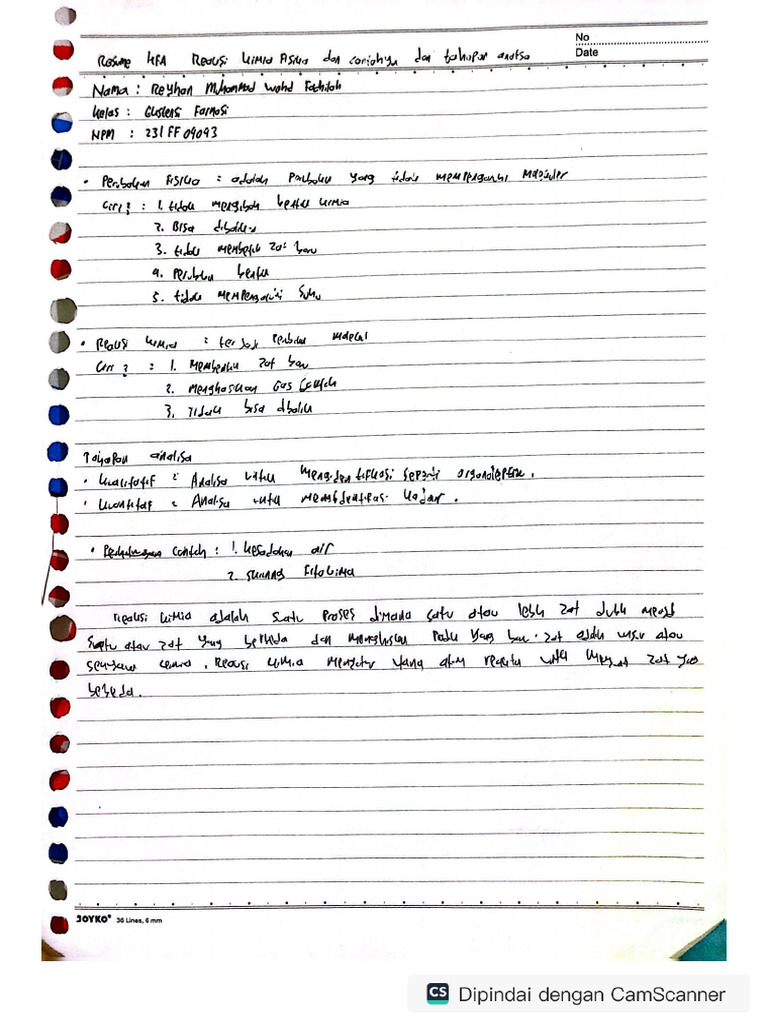 No
Date
Resume KFA Reaksi kimia Fisika dan contohnya dan tahapan analisa
Nama : Reyhan Muhammad Wahd Fadhilah
Kelas : Farmasi
NPM : 231FF04043
• Perubahan Fisika : adalah yang tidak mempengaruhi Molekuler
Ciri² : 1. tidak mengubah bentuk kimia
2. Bisa dibalik
3. tidak membentuk zat baru
4. Perubahan bentuk
5. tidak mempengaruhi Suhu
• Reaksi kimia : terjadi
Ciri² : 1. Membentuk zat baru
2. Menghasilkan Gas Contoh
3. Tidak bisa dibalik
Tahapan analisa
• Kualitatif = Analisa untuk mengidentifikasi seperti organoleptik.
• Kuantitatif = Analisa untuk kadar.
• contoh : 1. kesadahan air
2. Skrining Fitokimia
Reaksi kimia adalah suatu proses dimana satu atau lebih zat diubah menjadi
Suatu atau zat yang berbeda dan menghasilkan yang baru. zat adalah unsur atau
senyawa . Reaksi kimia yang atom untuk zat yang
berbeda.
JOYKO® 36 Lines, 6 mm
CS Dipindai dengan CamScanner